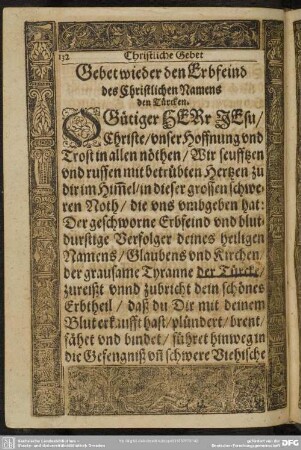 132
Christliche Gebet
Gebet wieder den Erbfeind
des Christlichen Namens
den Türcken.
O Gütiger HERr JEsu/
Christe/ vnser Hoffnung vnd
Trost in allen nöthen/ Wir seufftzen
vnd ruffen mit betrübten Hertzen zu
dir im Him̄el/ in dieser grossen schwe-
ren Noth/ die vns vmbgeben hat:
Der geschworne Erbfeind vnd blut
durstige Verfolger deines heiligen
Namens/ Glaubens vnd Kirchen/
der grausame Tyranne der Türcke/
zureißt vnnd zubricht dein schönes
Erbtheil/ daß du Dir mit deinem
Blut erkaufft hast/ plündert/ brent/
fähet vnd bindet/ führet hinweg in
die Gefengniß vn̄ schwere Viehische